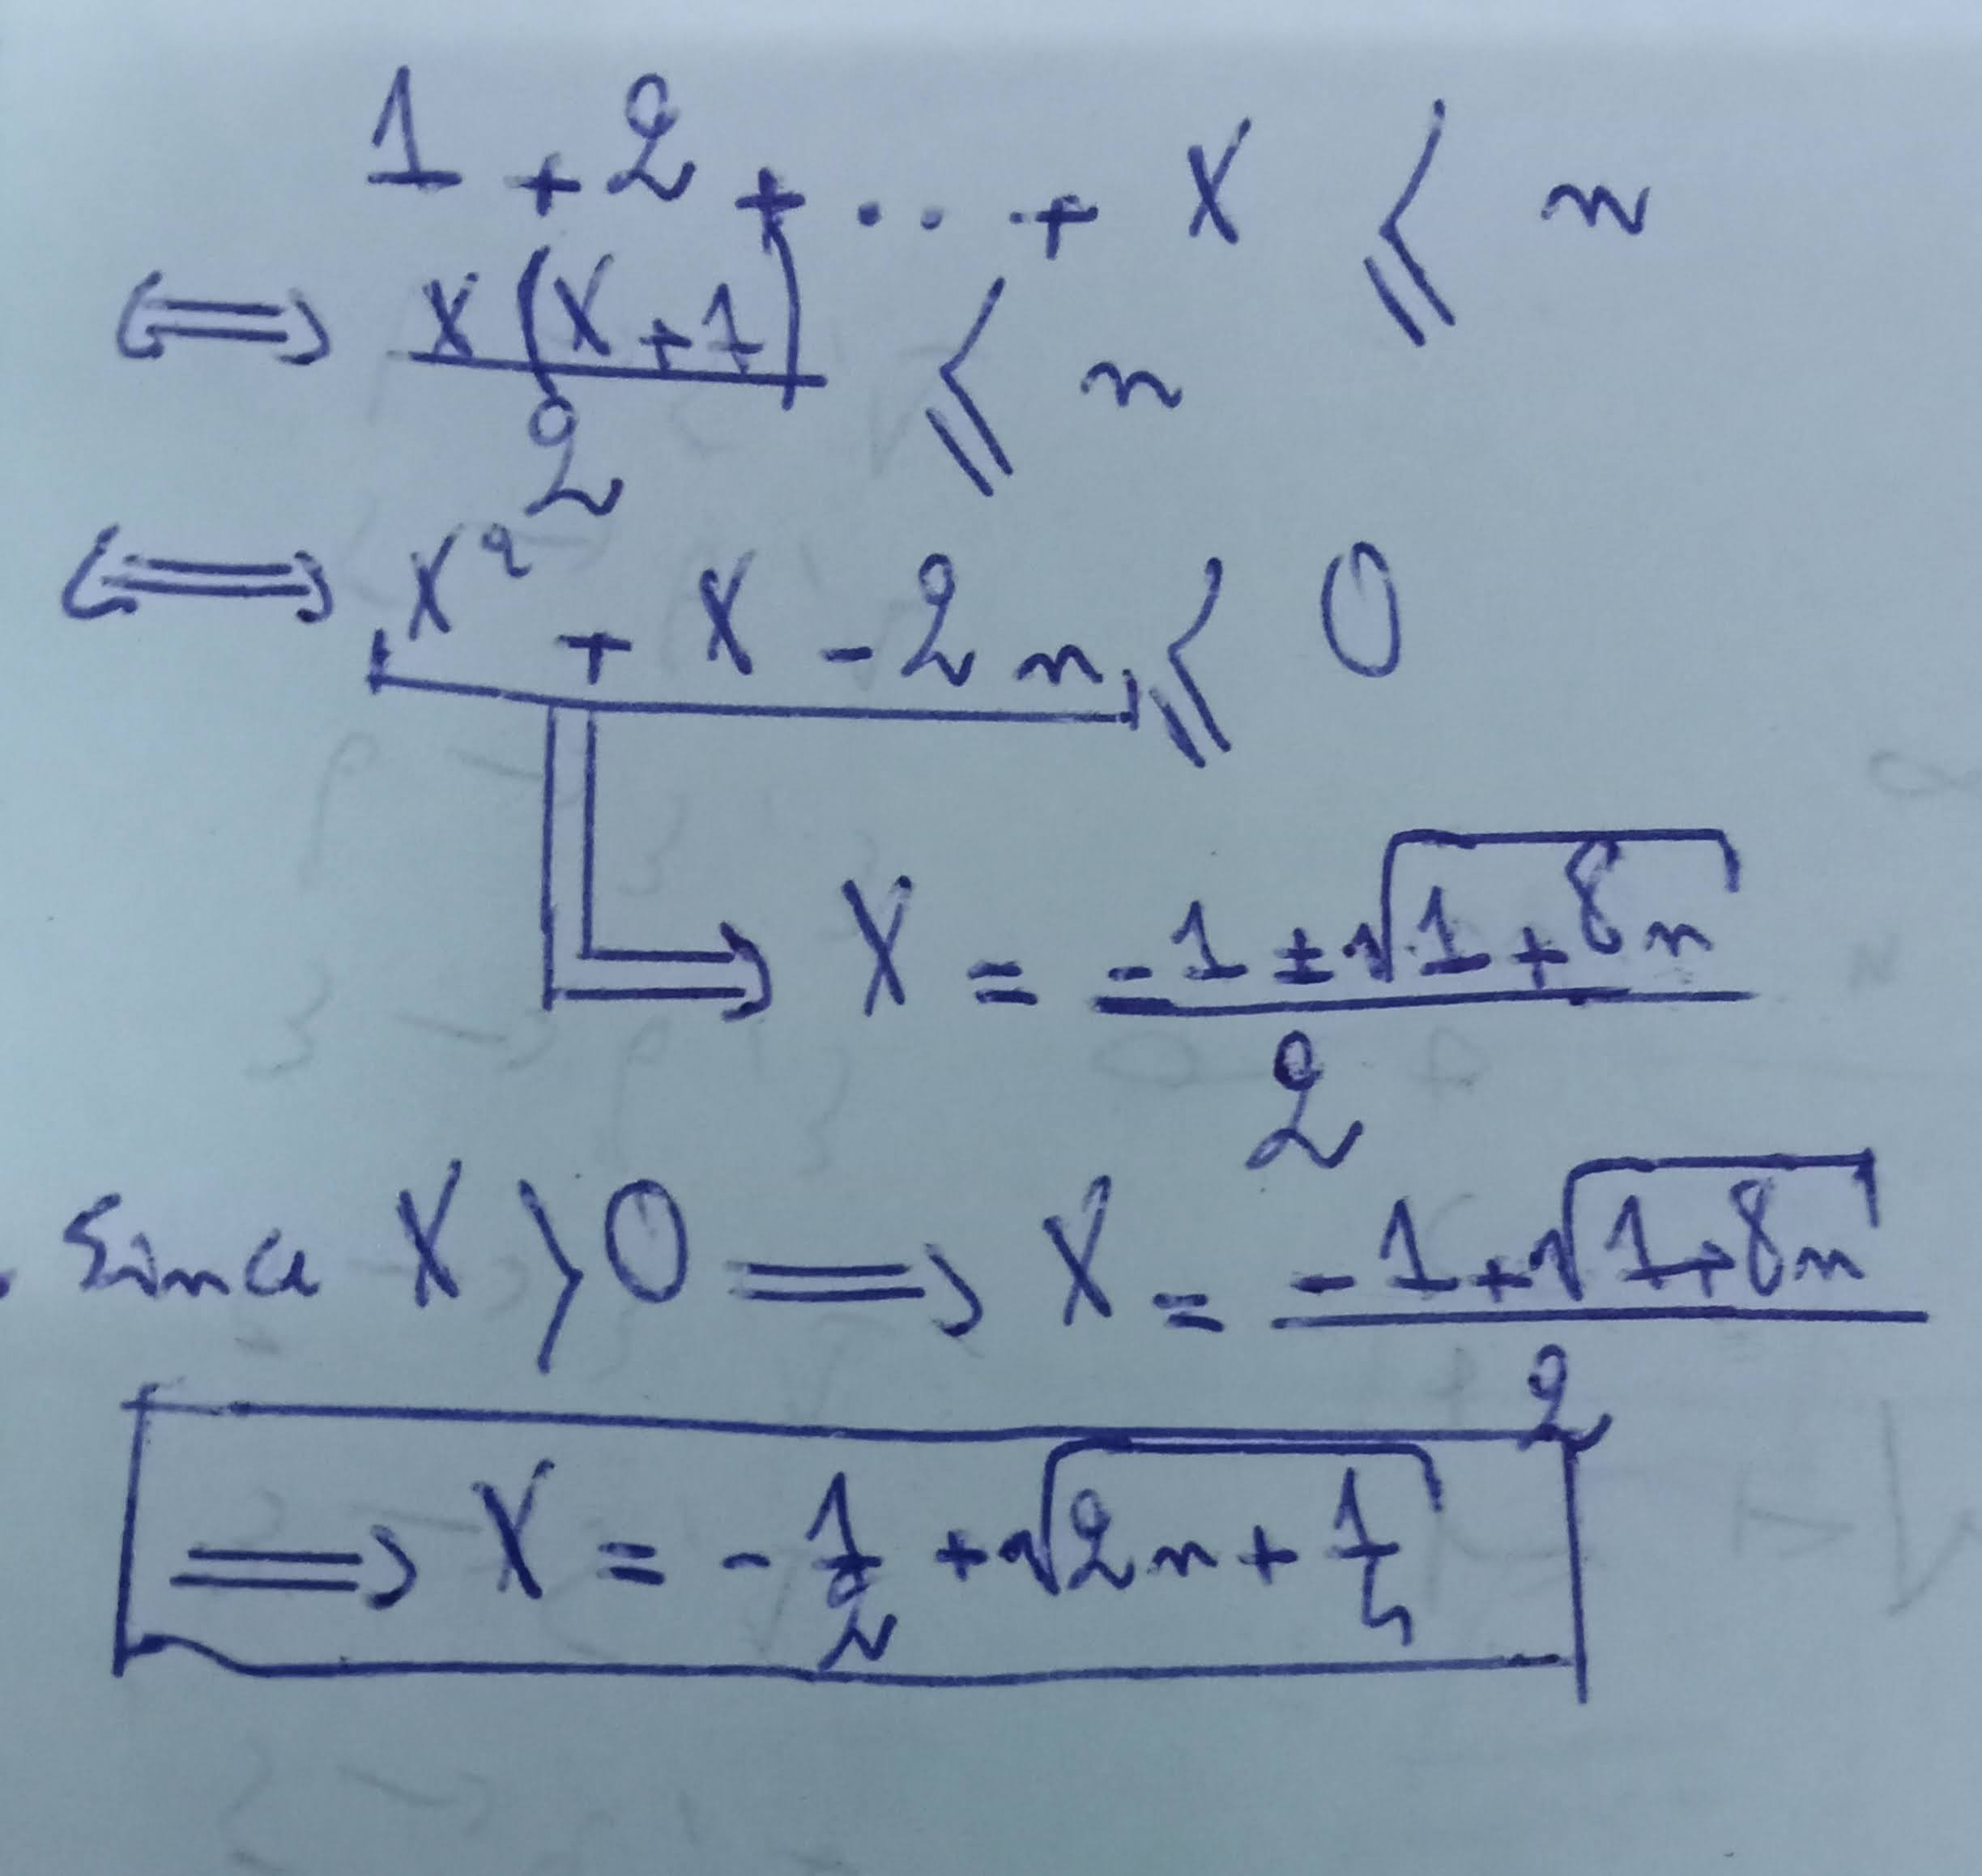 1 + 2 + ... + X ⩽ n
⟺ X(X+1)/2 ⩽ n
⟺ X² + X - 2n ⩽ 0
⟹ X = (-1 ± √(1+8n))/2
. Since X > 0 ⟹ X = (-1+√(1+8n))/2
⟹ X = -1/2 + √(2n + 1/4)